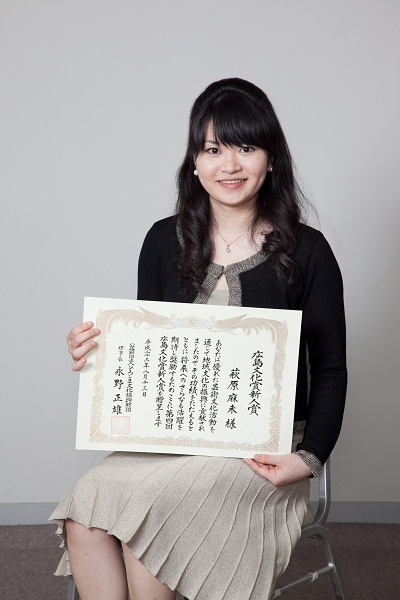 広島文化賞新人賞
萩原麻未様
あなたは優れた芸術文化活動を
通して地域文化の振興に貢献され
ましたのでその功績をたたえると
ともに将来へのさらなる活躍を
期待し奨励するためここに第四回
広島文化賞新人賞を贈呈します
平成二十三年八月二十三日
公益財団法人ひろしま文化振興財団
理事長 永野正雄